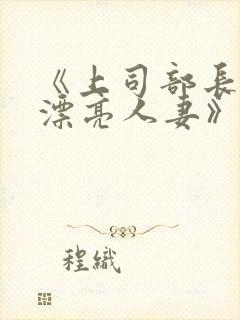 《上司部長
漂亮人妻》
程織